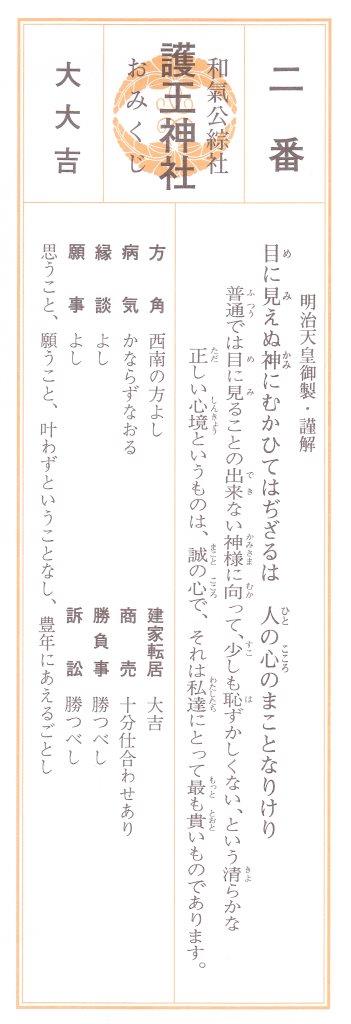 二番
和氣公綜社
護王神社
おみくじ
大大吉
明治天皇御製・謹解
目に見えぬ神にむかひてはぢざるは 人の心のまことなりけり
普通では目に見ることの出来ない神様に向って、少しも恥ずかしくない、という清らかな
正しい心境というものは、誠の心で、それは私達にとって最も貴いものであります。
方角 西南の方よし
病気 かならずなおる
縁談 よし
願事 よし
建家転居 大吉
商売 十分仕合わせあり
勝負事 勝つべし
訴訟 勝つべし
思うこと、願うこと、叶わずということなし、豊年にあえるごとし